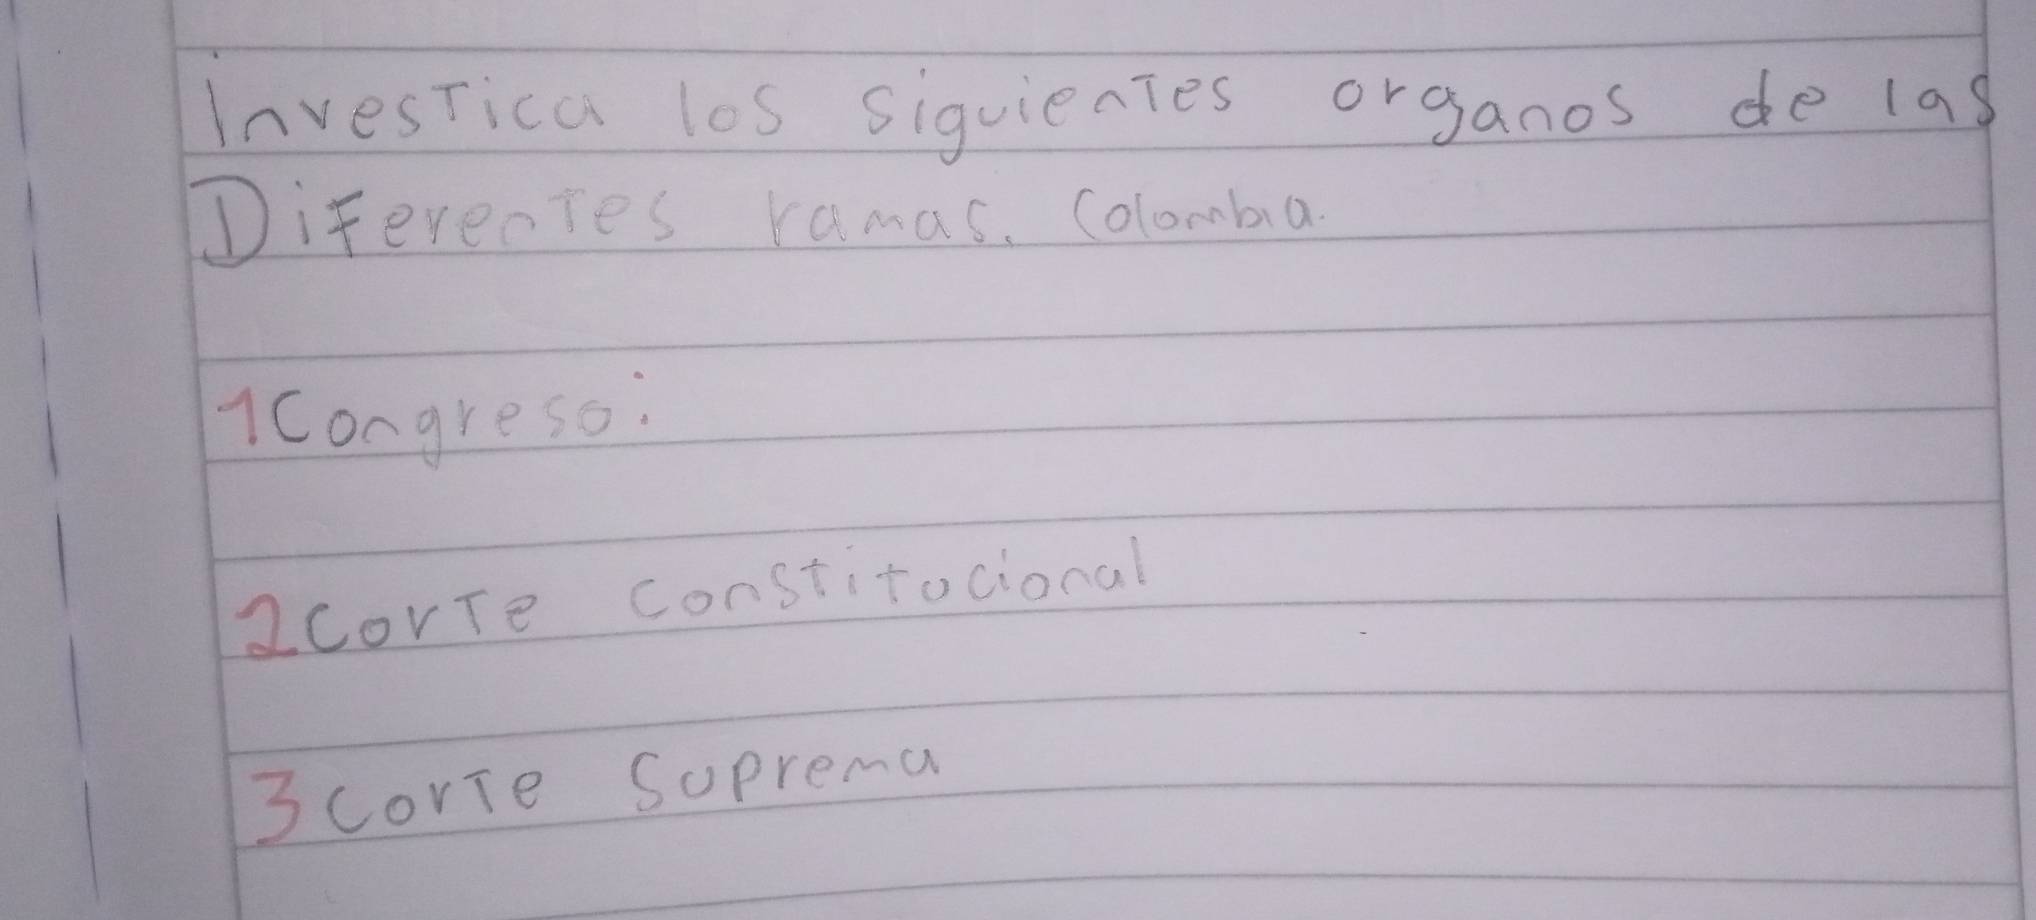 Investica los siguientes organos de las
Diferentes ramas. Colombia.
1 Congreso:
2 Corte constitucional
3 Corte Suprema